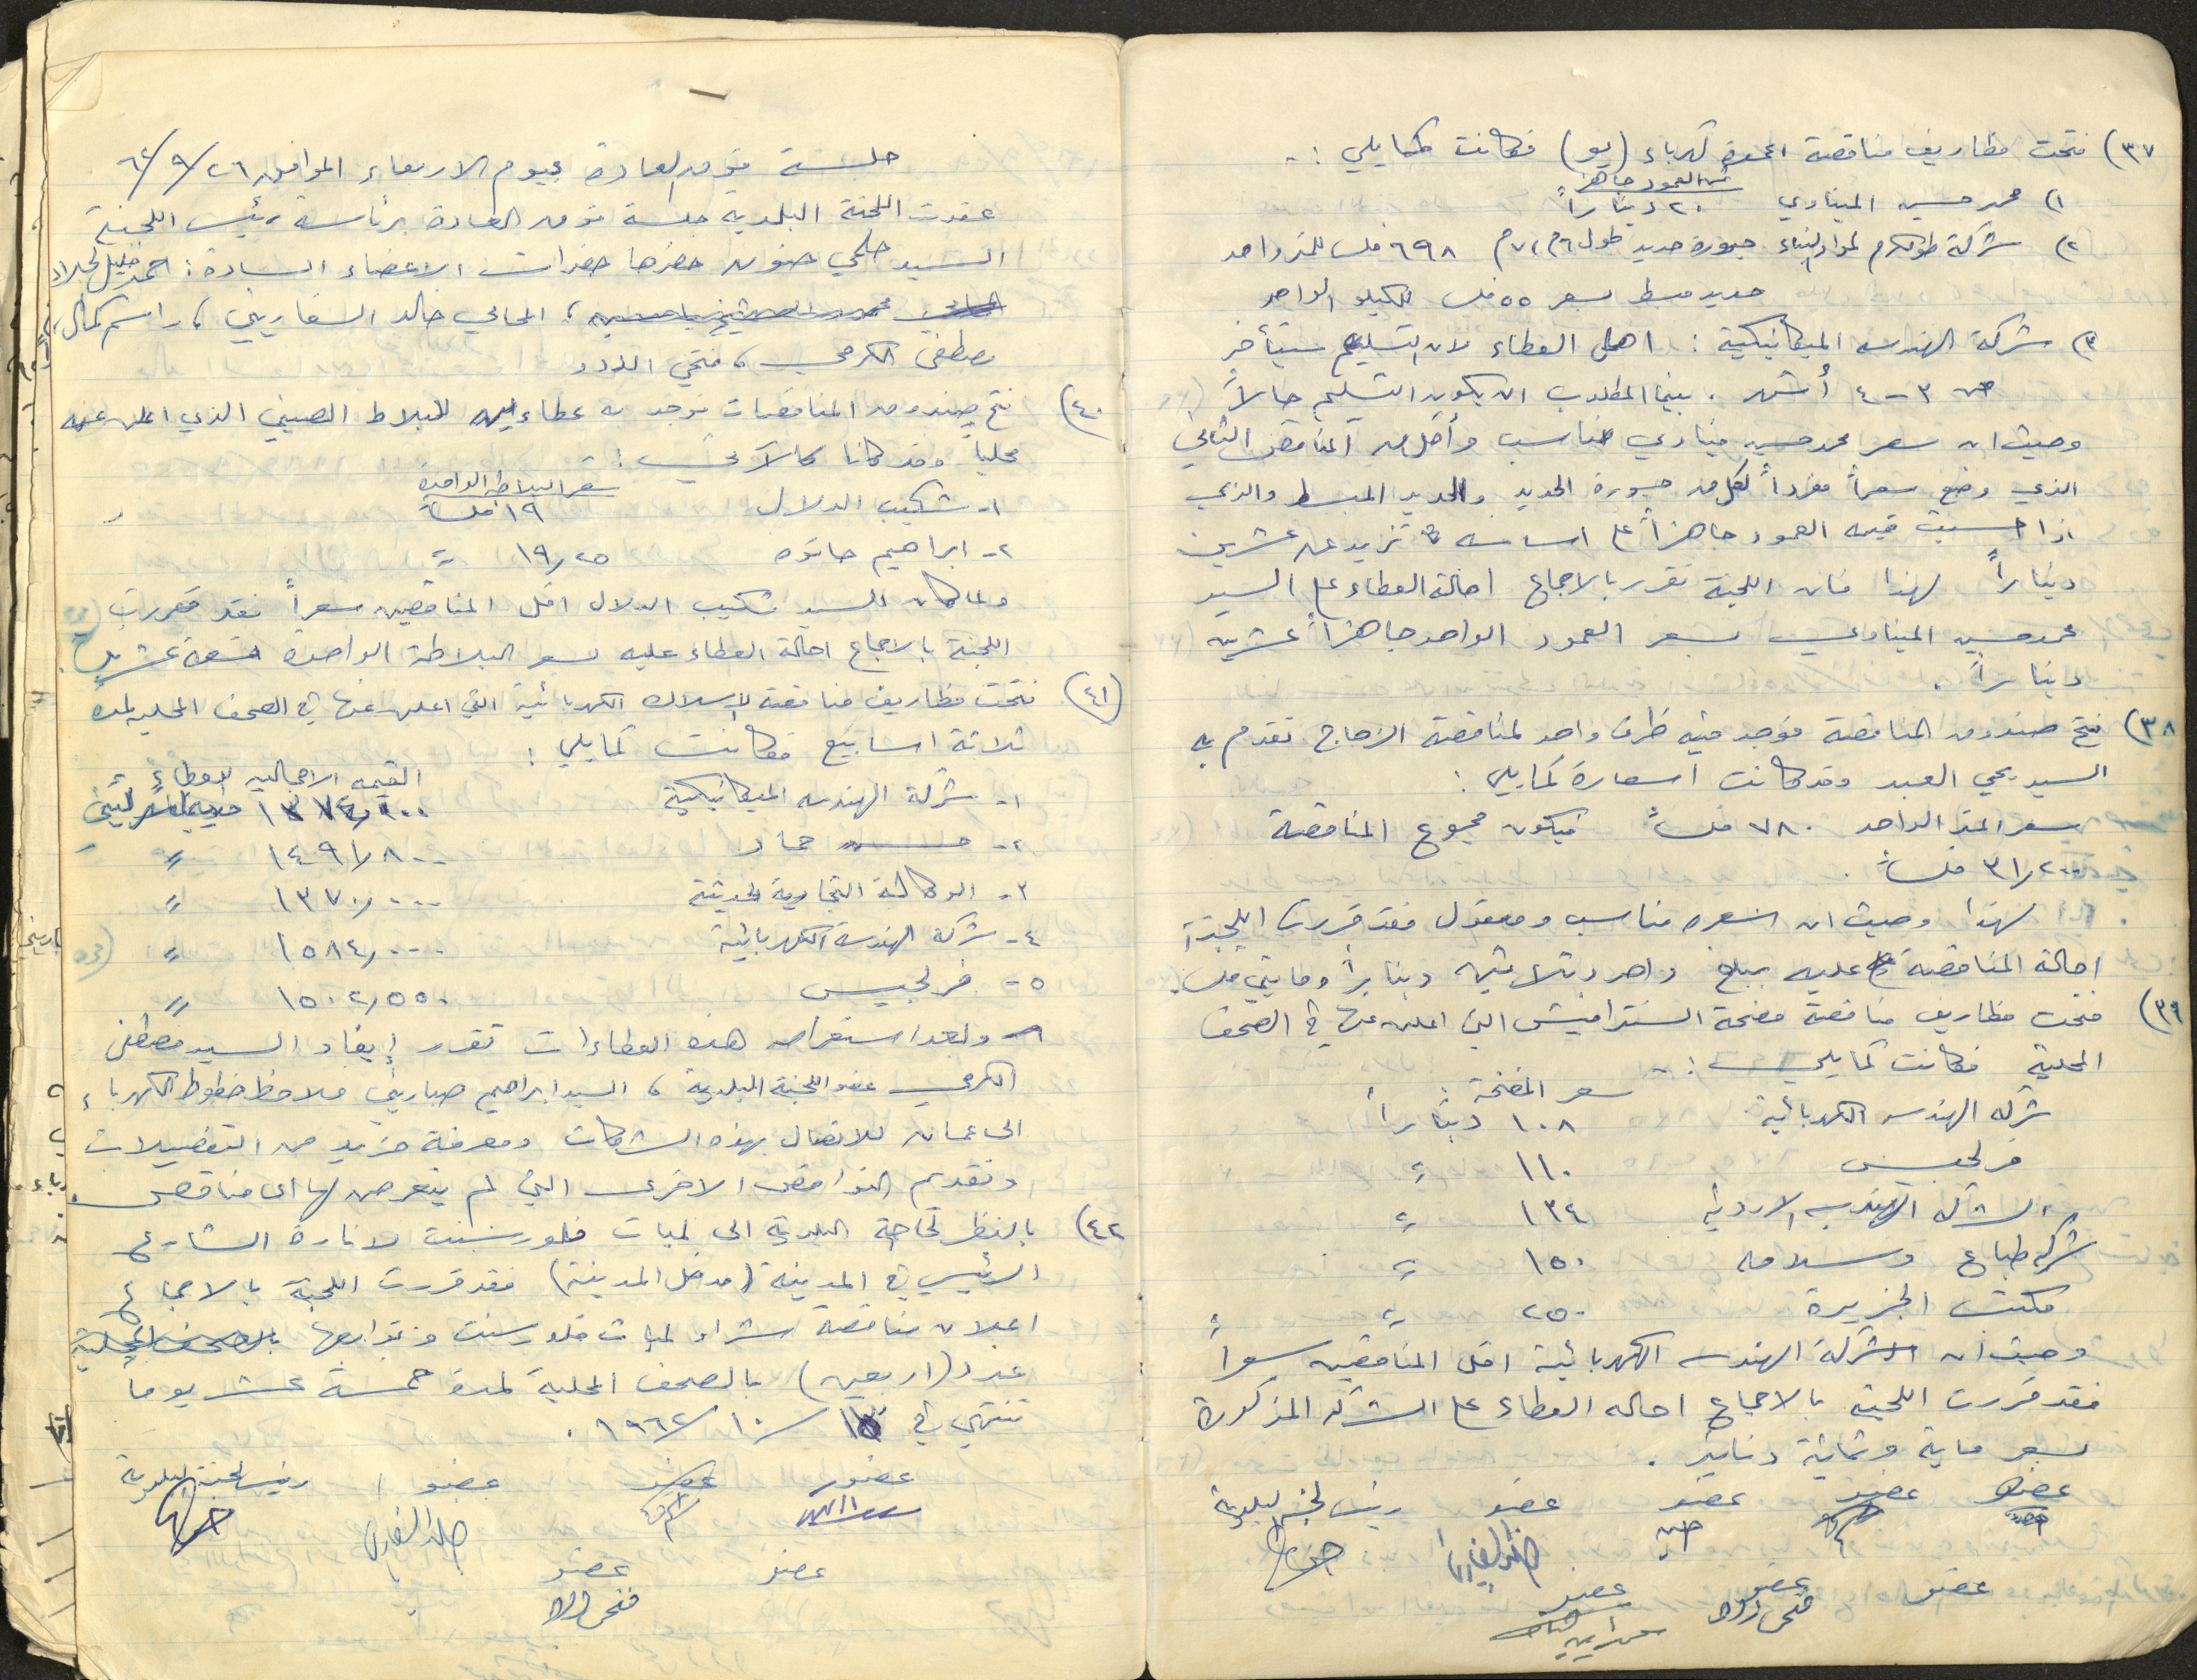 ٣٧) فتحت مظاريف مناقصة اعمدة كهرباء (يو) فكانت كمايلي :-
ثمن العمود جاهزاً
١) محمد حسين الميناوي ٢٠ ديناراً
٢) شركة طولكرم لمواد البناء جسورة حديد طول ٦م ٧،م ٦٩٨ فلس للمتر واحد
حديد مبسط بسعر ٥٥ فلس للكيلو الواحد
٣) شركة الهندسه الميكانيكية : اهمل العطاء لان التسليم سيتأخر
من ٣-٤ أشهر . بينما المطلوب ان يكون التسليم حالاً
وحيث ان سعر محمد حسين ميناوي مناسب وأقل من المناقص الثاني
الذي وضع سعراً مفرداً لكل من جسورة الحديد والحديد المبسط والذي
اذا احسبت قيمه العمود جاهزاً على اساسه تزيد عن عشرين
ديناراً لهذا فان اللجنة تقرر بالاجماع احالة العطاء على السيد
محمد حسين الميناوي بسعر العمود الواحد جاهزاً عشرين
ديناراً .
٣٨) فتح صندوق المناقصة فوجد فيه ظرف واحد لمناقصة الزجاج تقدم به
السيد يحي العبد وقد كانت اسعاره كمايلي :
سعر المتر الواحد ٧٨٠ فلساً فيكون مجموع المناقصة
٣١٫٢٠٠ فلساً .
لهذا وحيث ان السعر مناسب ومعقول فقد قررت اللجنة
احالة المناقصة عليه بمبلغ واحد وثلاثين ديناراً ومايتي فلس .
٣٩) فتحت مظاريف مناقصة مضخة السنترافيش التي اعلن عنها في الصحف
المحلية فكانت كمايلي :-
سعر المضخة :
شركة الهندسه الكهربائية ١٠٨ ديناراً
فرلجيس ١١٠ "
الشركه الهندسيه الاردنيه ١٣٤ "
شركه طباع وسلامه ١٥٠ "
مكتب الجزيرة ٢٥٠ "
وحيث ان شركة الهندسه الكهربائية اقل المناقصين سعراً
فقد قررت اللجنة بالاجماع احاله العطاء على الشركه المذكورة
بسعر ماية وثمانية دنانير .
عضو عضو عضو عضو رئيس لجنة البلدية
عضو عضو عضو
جلسة فوق العادة يوم الاربعاء الموافق ٦٢/٩/٢٦
عقدت اللجنة البلدية جلسة فوق العادة برئاسة رئيس اللجنة
السيد حلمي حنون حضرها حضرات الاعضاء السادة : احمد خليل الجلاد
، المحامي خالد السفاريني ، راسم كمال ،
مصطفى الكرمي ، فتحي اللدد
٤٠) فتح صندوق المناقصات فوجد به عطاءين للبلاط الصيني الذي اعلن عنه
محلياً وقد كانا كالآتي :
سعر البلاطه الواحدة
١- شكيب الدلال ١٩ فلساً
٢- ابراهيم حانوه ١٩٫٢٥ "
ولما كان السيد شكيب الدلال اقل المناقصين سعراً فقد قررت
اللجنة بالاجماع احالة العطاء عليه بسعر البلاطة الواحدة تسعة عشر
٤١) فتحت مظاريف مناقصة الاسلاك الكهربائية التي اعلن عنها في الصحف المحليه لمدة
ثلاثة اسابيع فكانت كمايلي :
القيمه الاجماليه للعطاء
١- شركة الهندسه الميكانيكية
٢- حماد ١٤٩١٫٨٠٠ "
٣- الوكالة التجارية الحديثة ١٣٧٠٫٠٠٠ "
٤- شركة الهندسه الكهربائية ١٥٨٤٫٠٠٠ "
٥- فرلجيس ١٥٠٢٫٥٥٠ "
وبعد استعراض هذه العطاءات تقرر إيفاد السيد مصطفى
الكرمي عضو اللجنة البلدية ، السيد ابراهيم صباريني ملاحظ خطوط الكهرباء
الى عمان للاتصال بهذه الشركات ومعرفة مزيد من التفصيلات
وتقديم النواقص الاخرى التي لم يتعرض لها اي مناقص .
٤٢) بالنظر لحاجة البلدية الى لمبات فلورسنت لانارة الشارع
الرئيسي في المدينة (مدخل المدينة) فقد قررت اللجنة بالاجماع
اعلان مناقصة شراء لمبات فلورسنت وتوابعها بالصحف المحلية
عدد (اربعين) بالصحف المحلية لمدة خمسة عشر يوما
تنتهي في ١٥/١٠/١٩٦٢ .
عضو عضو عضو رئيس لجنة البلدية
عضو عضو